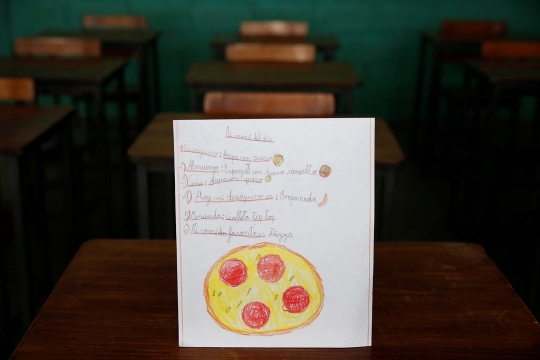 Mi menú del día
1) Desayuno: Arepa con queso
2) Almuerzo: Espagueti con huevo revuelto
3) Cena: Arepa con queso
4) Hoy mi desayuno es: Empanada
5) Merienda:
6) Mi comida favorita: Pizza